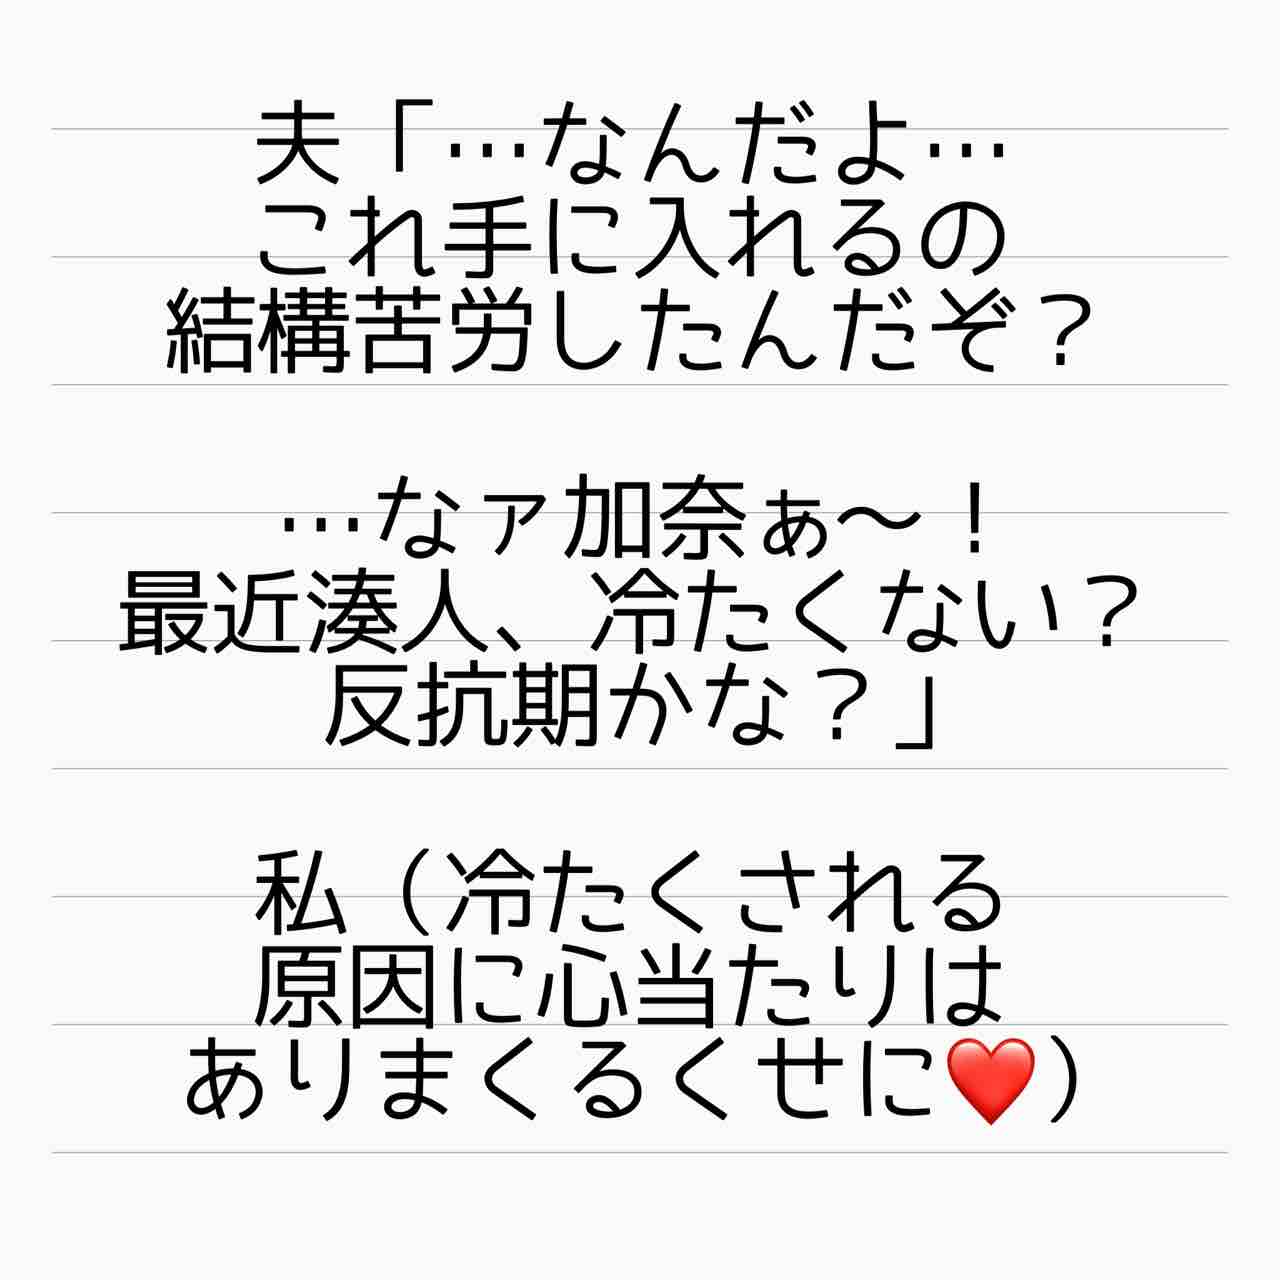 夫「…なんだよ…
これ手に入れるの
結構苦労したんだぞ？
…なァ加奈ぁ〜！
最近湊人、冷たくない？
反抗期かな？」
私（冷たくされる
原因に心当たりは
ありまくるくせに❤️）